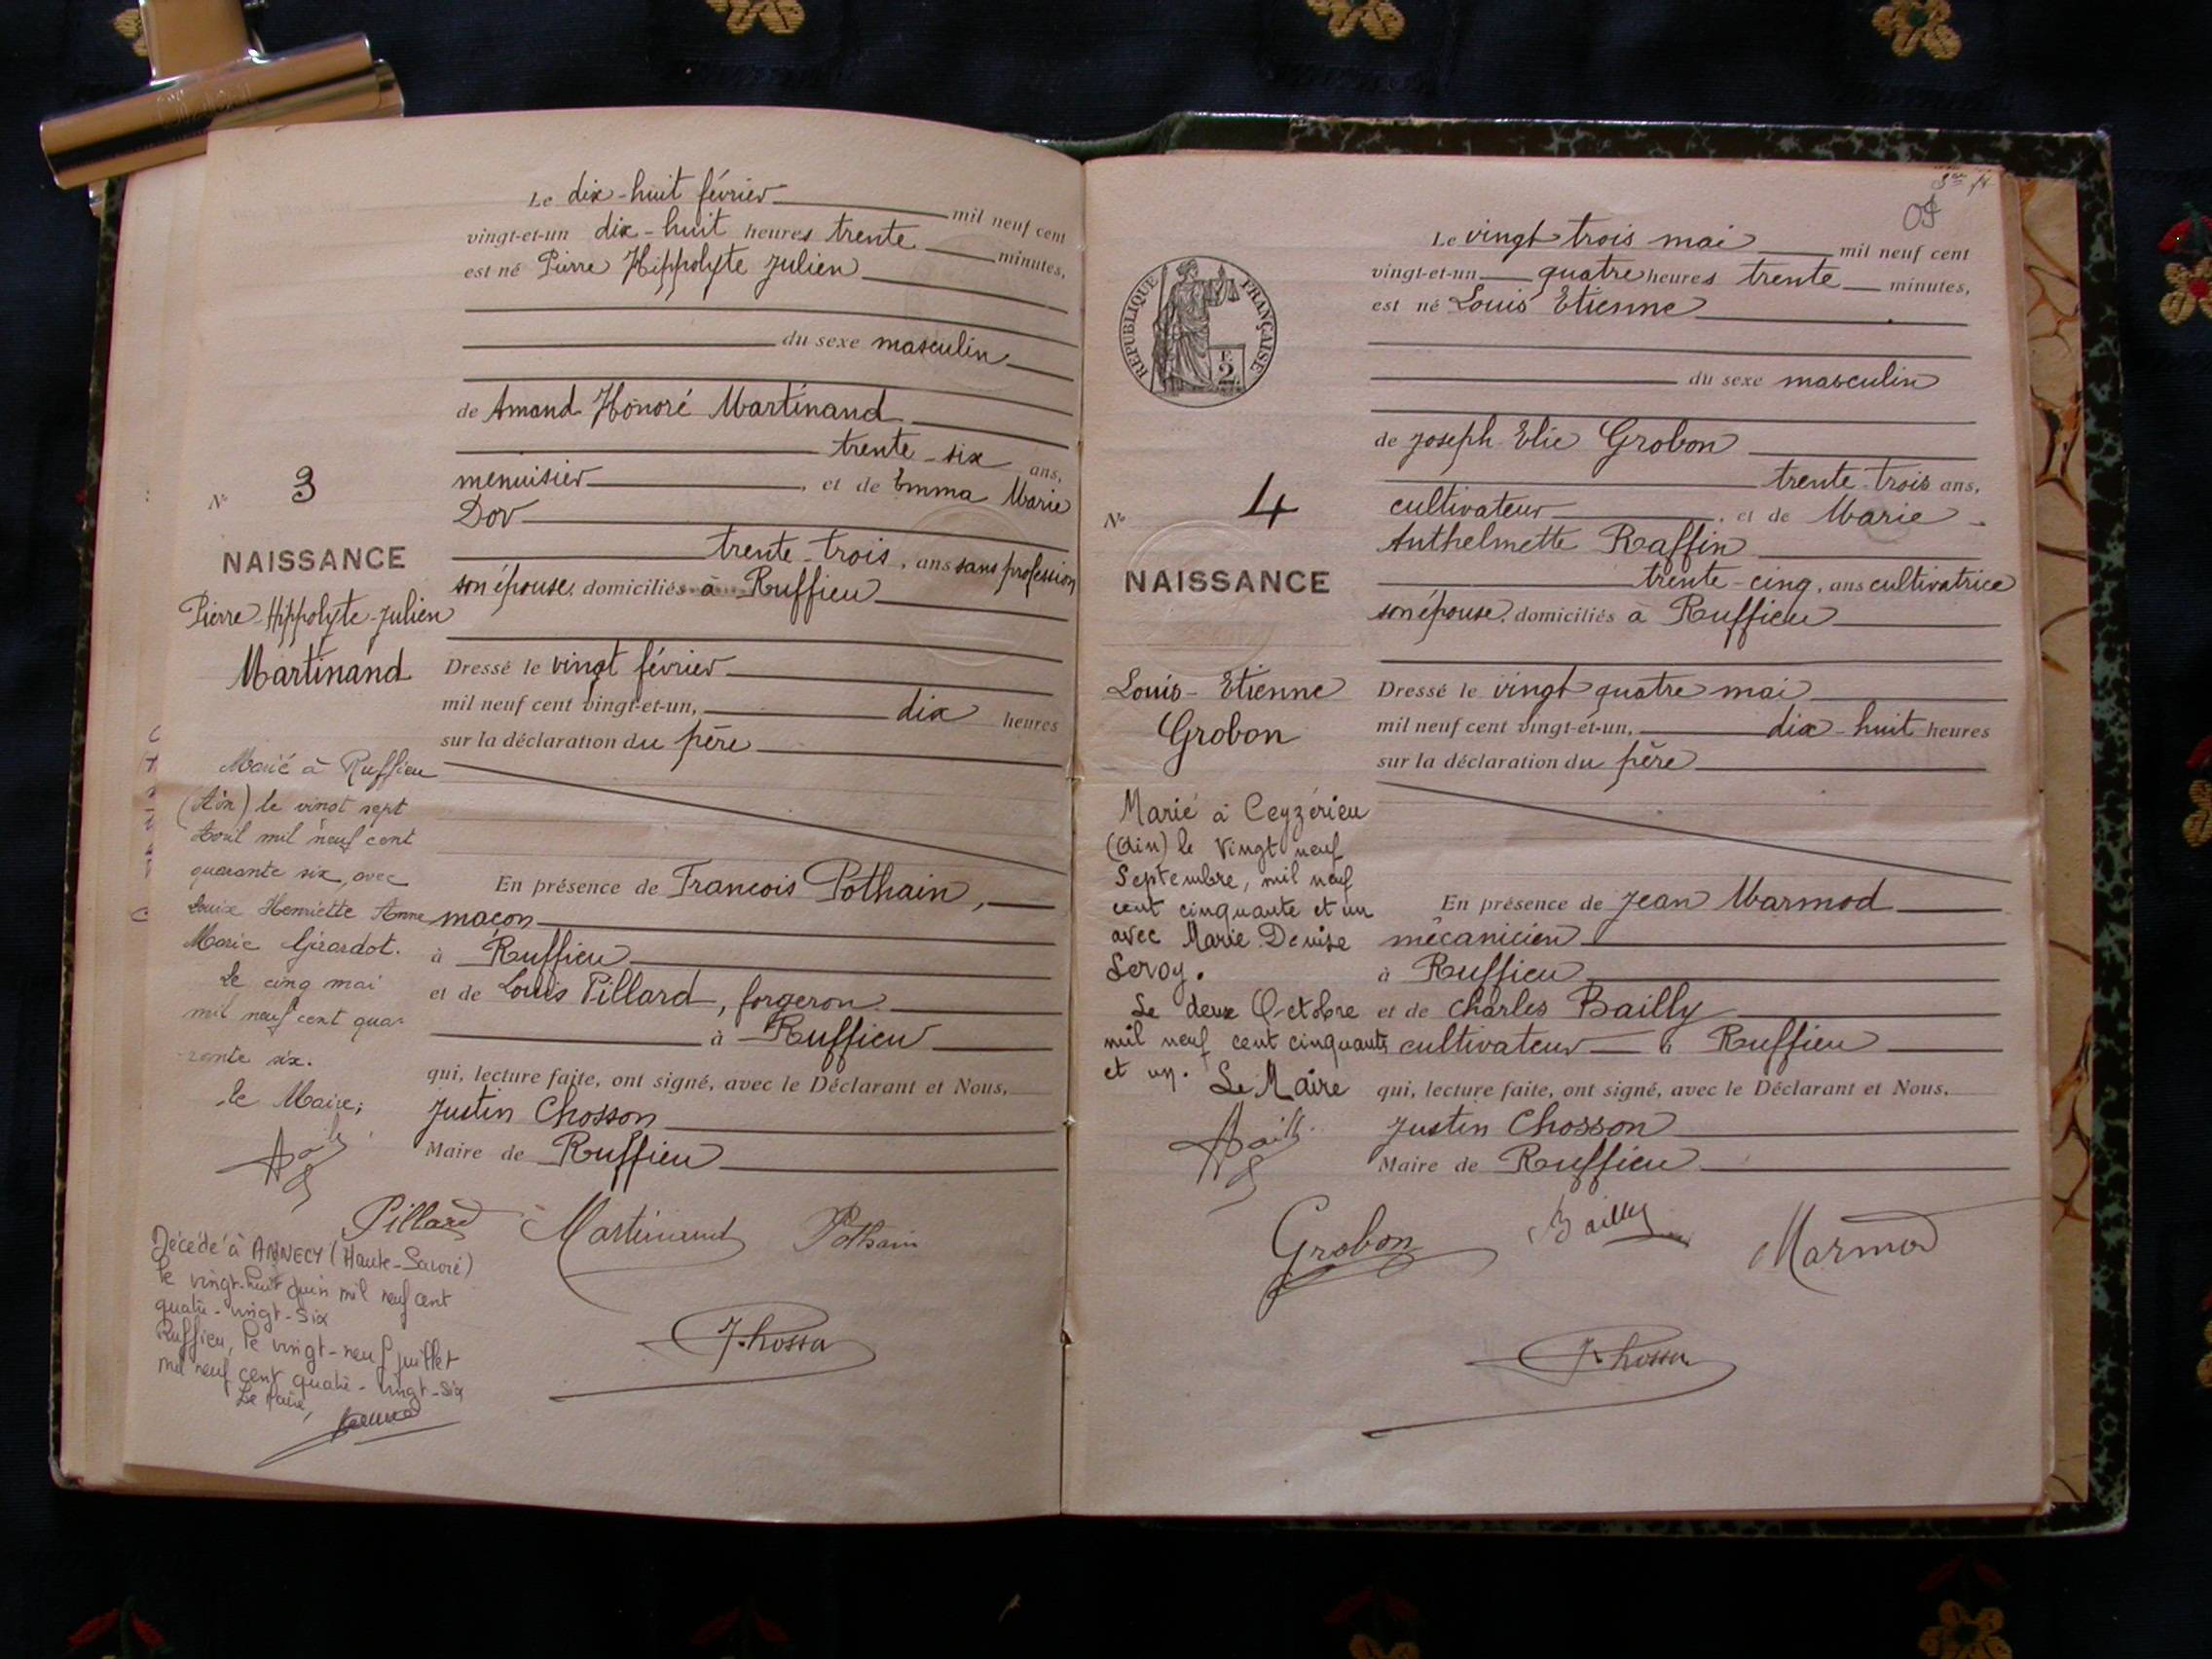 Le dix-huit février mil neuf cent
vingt-et-un dix-huit heures trente minutes,
est né Pierre Hippolyte Julien
du sexe masculin
de Amand Honoré Martinand
trente-six ans,
menuisier, et de Emma Marie
Dov
trente-trois, ans sans profession
son épouse, domiciliés à Ruffieu
Dressé le vingt février
mil neuf cent vingt-et-un, dix heures
sur la déclaration du père
En présence de Francois Pothain,
maçon
à Ruffieu
et de Louis Pillard, forgeron
à Ruffieu
qui, lecture faite, ont signé, avec le Déclarant et Nous,
Justin Chosson
Maire de Ruffieu
Pillard Martinand Pothain
N° 3
NAISSANCE
Pierre-Hippolyte-Julien
Martinand
Marié à Ruffieu
(Ain) le vingt sept
Avril mil neuf cent
quarante six, avec
Louise Henriette Anne
Marie Girardot.
Le cinq mai
mil neuf cent qua-
rante six.
le Maire;
Décédé à ANNECY (Haute-Savoie)
le vingt-huit juin mil neuf cent
quatre-vingt-six
Ruffieu, le vingt-neuf juillet
mil neuf cent quatre-vingt-six
Le Maire,
RÉPUBLIQUE FRANÇAISE
2
N° 4
NAISSANCE
Louis-Etienne
Grobon
Marié à Ceyzérieu
(Ain) le Vingt neuf
Septembre, mil neuf
cent cinquante et un
avec Marie Denise
Leroy.
Le deux Octobre
mil neuf cent cinquante
et un. Le Maire
Le vingt trois mai mil neuf cent
vingt-et-un quatre heures trente minutes,
est né Louis Etienne
du sexe masculin
de Joseph Elie Grobon
trente-trois ans,
cultivateur, et de Marie
Anthelmette Raffin
trente-cinq, ans cultivatrice
son épouse, domiciliés à Ruffieu
Dressé le vingt quatre mai
mil neuf cent vingt-et-un, dix-huit heures
sur la déclaration du père
En présence de Jean Marmod
mécanicien
à Ruffieu
et de Charles Bailly
cultivateur à Ruffieu
qui, lecture faite, ont signé, avec le Déclarant et Nous,
Justin Chosson
Maire de Ruffieu
Grobon Bailly Marmod